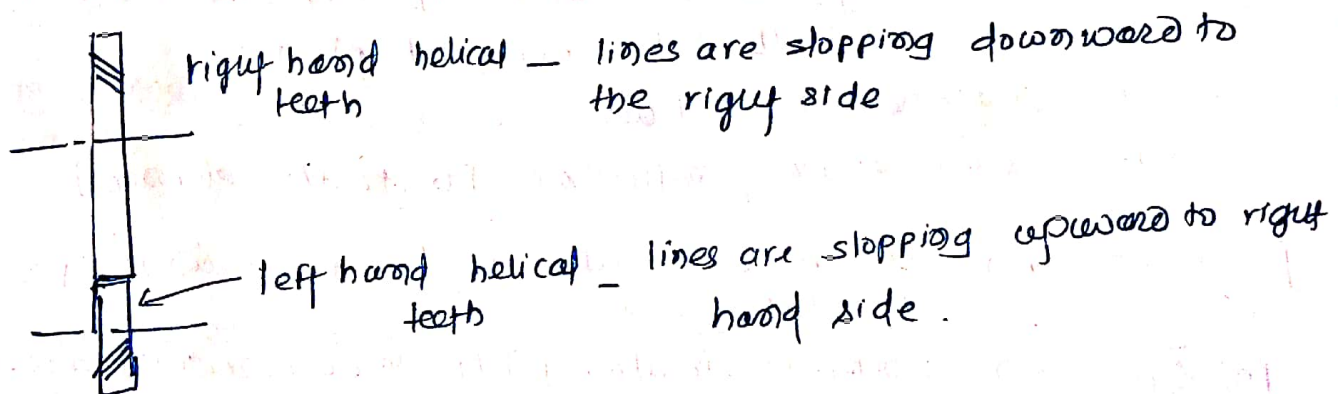 right hand helical – lines are slopping downward to
teeth the right side
left hand helical – lines are slopping upward to right
teeth hand side.